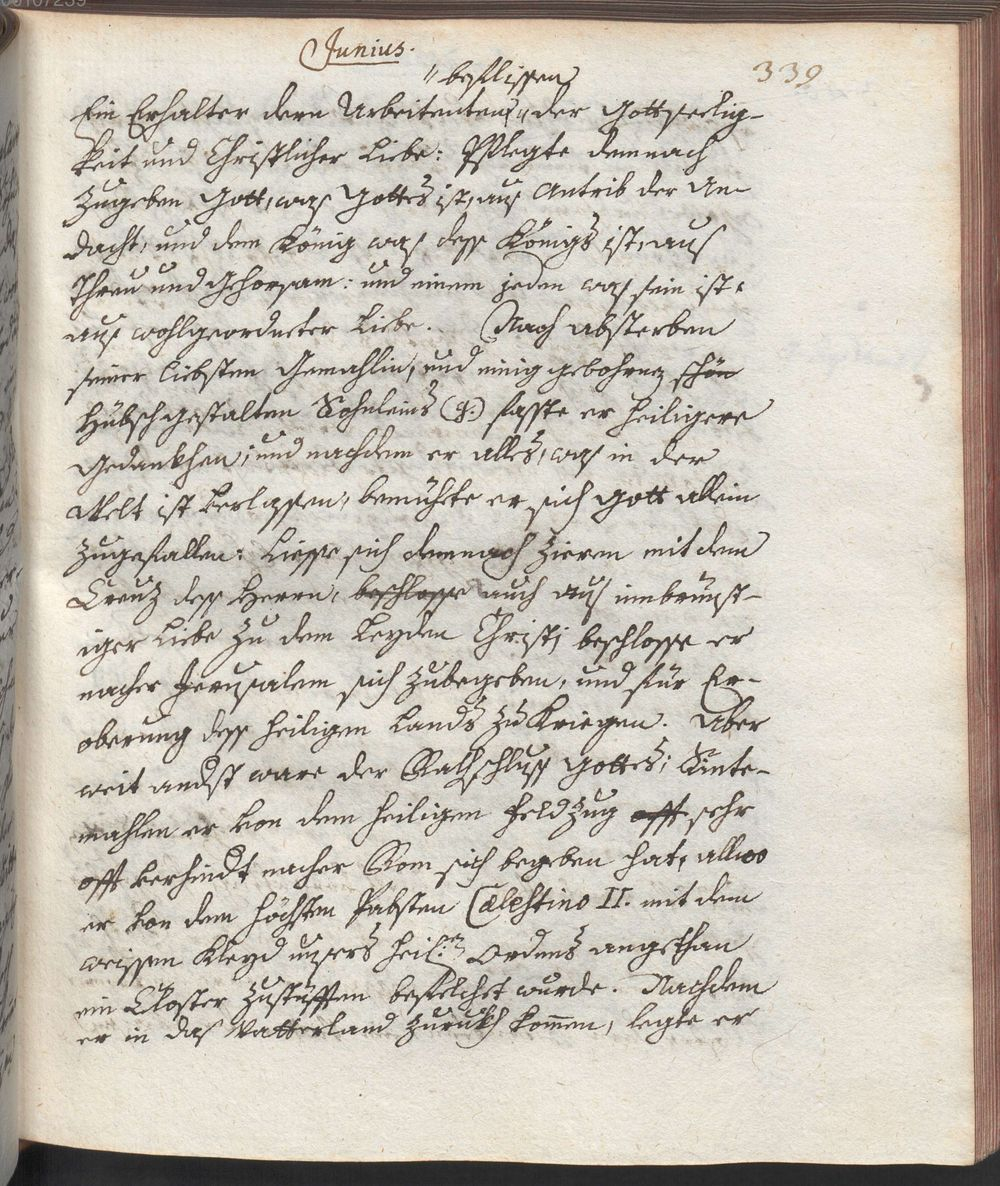 Junius.
339
" beflissen
Ein Erhalter deren Arbeitenten, " der Gottseelig-
keit und Christlicher Liebe: Pflegte demnach
Zugeben Gott, was Gottes ist, aus Antrib der An-
dacht, und dem König was dess Königs ist, aus
Threu und Gehorsam: und einem jeden was sein ist,
aus wohlgeordneter Liebe. Nach absterben
seiner liebsten Gemahlin, und einig gebohrnen schön
hübsch gestalten Sohnleins (q.) fasste er heiligere
Gedankhen, und nachdem er alles, was in der
Welt ist verlassen, bemühete er sich Gott allein
Zugefallen: Liesse sich demnach Zieren mit dem
Creutz dess Herrn, beschlosse auch aus innbrünst-
iger Liebe Zu dem Leyden Christi beschlosse er
nacher Jerusalem sich Zubegeben, und für Er-
oberung dess heiligen Lands Zu Kriegen. Aber
weit andst ware der Rathschluss Gottes; Sinte-
mahlen er von dem heiligen Feldzug offt sehr
offt verhindt nacher Rom sich begeben hat, allwo
er von dem höchsten Pabsten Cælestino II. mit dem
weissen Kleyd unsers heil:n Ordens angethan
ein Closter Zustüfften befelchet wurde. Nachdem
er in das Vatterland Zurukh kommen, legte er